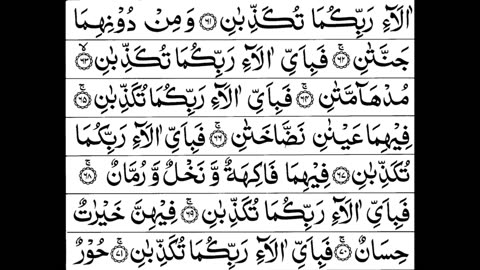 اٰلَآءِ رَبِّكُمَا تُكَذِّبٰنِ ﴿۶۱﴾ وَ مِنْ دُوْنِهِمَا
جَنَّتٰنِ ﴿۶۲﴾ۚ فَبِاَيِّ اٰلَآءِ رَبِّكُمَا تُكَذِّبٰنِ ﴿۶۳﴾ۙ
مُدْهَآمَّتٰنِ ﴿۶۴﴾ۚ فَبِاَيِّ اٰلَآءِ رَبِّكُمَا تُكَذِّبٰنِ ﴿۶۵﴾ۚ
فِيْهِمَا عَيْنٰنِ نَضَّاخَتٰنِ ﴿۶۶﴾ۚ فَبِاَيِّ اٰلَآءِ رَبِّكُمَا
تُكَذِّبٰنِ ﴿۶۷﴾ فِيْهِمَا فَاكِهَةٌ وَّ نَخْلٌ وَّ رُمَّانٌ ﴿۶۸﴾ۚ
فَبِاَيِّ اٰلَآءِ رَبِّكُمَا تُكَذِّبٰنِ ﴿۶۹﴾ۚ فِيْهِنَّ خَيْرٰتٌ
حِسَانٌ ﴿۷۰﴾ۚ فَبِاَيِّ اٰلَآءِ رَبِّكُمَا تُكَذِّبٰنِ ﴿۷۱﴾ۚ حُوْرٌ